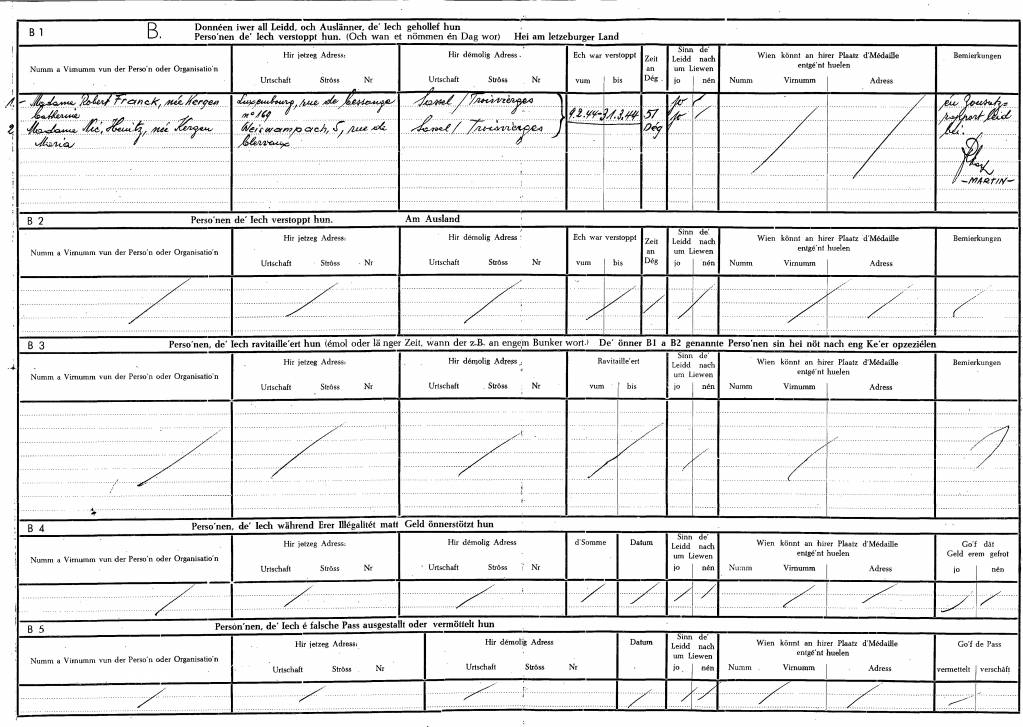 B 1 B. Donnéen iwer all Leidd, och Auslänner, de' Iech gehollef hun
Perso'nen de' Iech verstoppt hun. (Och wan et nömmen én Dag wor) Hei am letzeburger Land
Numm a Virnumm vun der Perso'n oder Organisatio'n
Hir jetzeg Adress:
Urtschaft Ströss Nr
Hir démolig Adress:
Urtschaft Ströss Nr
Ech war verstoppt
vum bis
Zeit
an
Dég
Sinn de'
Leidd nach
um Liewen
jo nén
Wien könnt an hirer Plaatz d'Médaille
entgé'nt huelen
Numm Virnumm Adress
Bemierkungen
1.- Madame Robert Franck, née Kergen
Catherine
Luxembourg, rue de Cessange
n° 169
Troisvierges
9.2.44-31.3.44
51
Dég
jo
2. Madame Nic. née Kergen
Maria
Weiswampach, 5, rue de
Clervaux
Troisvierges
jo
en Zousatz-
rapport leid
bei.
-MARTIN-
B 2 Perso'nen de' Iech verstoppt hun. Am Ausland
Numm a Virnumm vun der Perso'n oder Organisatio'n
Hir jetzeg Adress:
Urtschaft Ströss Nr
Hir démolig Adress:
Urtschaft Ströss Nr
Ech war verstoppt
vum bis
Zeit
an
Dég
Sinn de'
Leidd nach
um Liewen
jo nén
Wien könnt an hirer Plaatz d'Médaille
entgé'nt huelen
Numm Virnumm Adress
Bemierkungen
B 3 Perso'nen, de' Iech ravitaille'ert hun (émol oder länger Zeit, wann der z.B. an engem Bunker wort.) De' önner B1 a B2 genannte Perso'nen sin hei nöt nach eng Ke'er opzeziélen
Numm a Virnumm vun der Perso'n oder Organisatio'n
Hir jetzeg Adress:
Urtschaft Ströss Nr
Hir démolig Adress:
Urtschaft Ströss Nr
Ravitaille'ert
vum bis
Sinn de'
Leidd nach
um Liewen
jo nén
Wien könnt an hirer Plaatz d'Médaille
entgé'nt huelen
Numm Virnumm Adress
Bemierkungen
B 4 Perso'nen, de' Iech während Erer Illégalitét matt Geld önnerstötzt hun
Numm a Virnumm vun der Perso'n oder Organisatio'n
Hir jetzeg Adress:
Urtschaft Ströss Nr
Hir démolig Adress
Urtschaft Ströss Nr
d'Somme
Datum
Sinn de'
Leidd nach
um Liewen
jo nén
Wien könnt an hirer Plaatz d'Médaille
entgé'nt huelen
Numm Virnumm Adress
Go'f dât
Geld erem gefrot
jo nén
B 5 Person'nen, de' Iech é falsche Pass ausgestallt oder vermöttelt hun
Numm a Virnumm vun der Perso'n oder Organisatio'n
Hir jetzeg Adress:
Urtschaft Ströss Nr
Hir démolig Adress
Urtschaft Ströss Nr
Datum
Sinn de'
Leidd nach
um Liewen
jo nén
Wien könnt an hirer Plaatz d'Médaille
entgé'nt huelen
Numm Virnumm Adress
Go'f de Pass
vermettelt verschâft